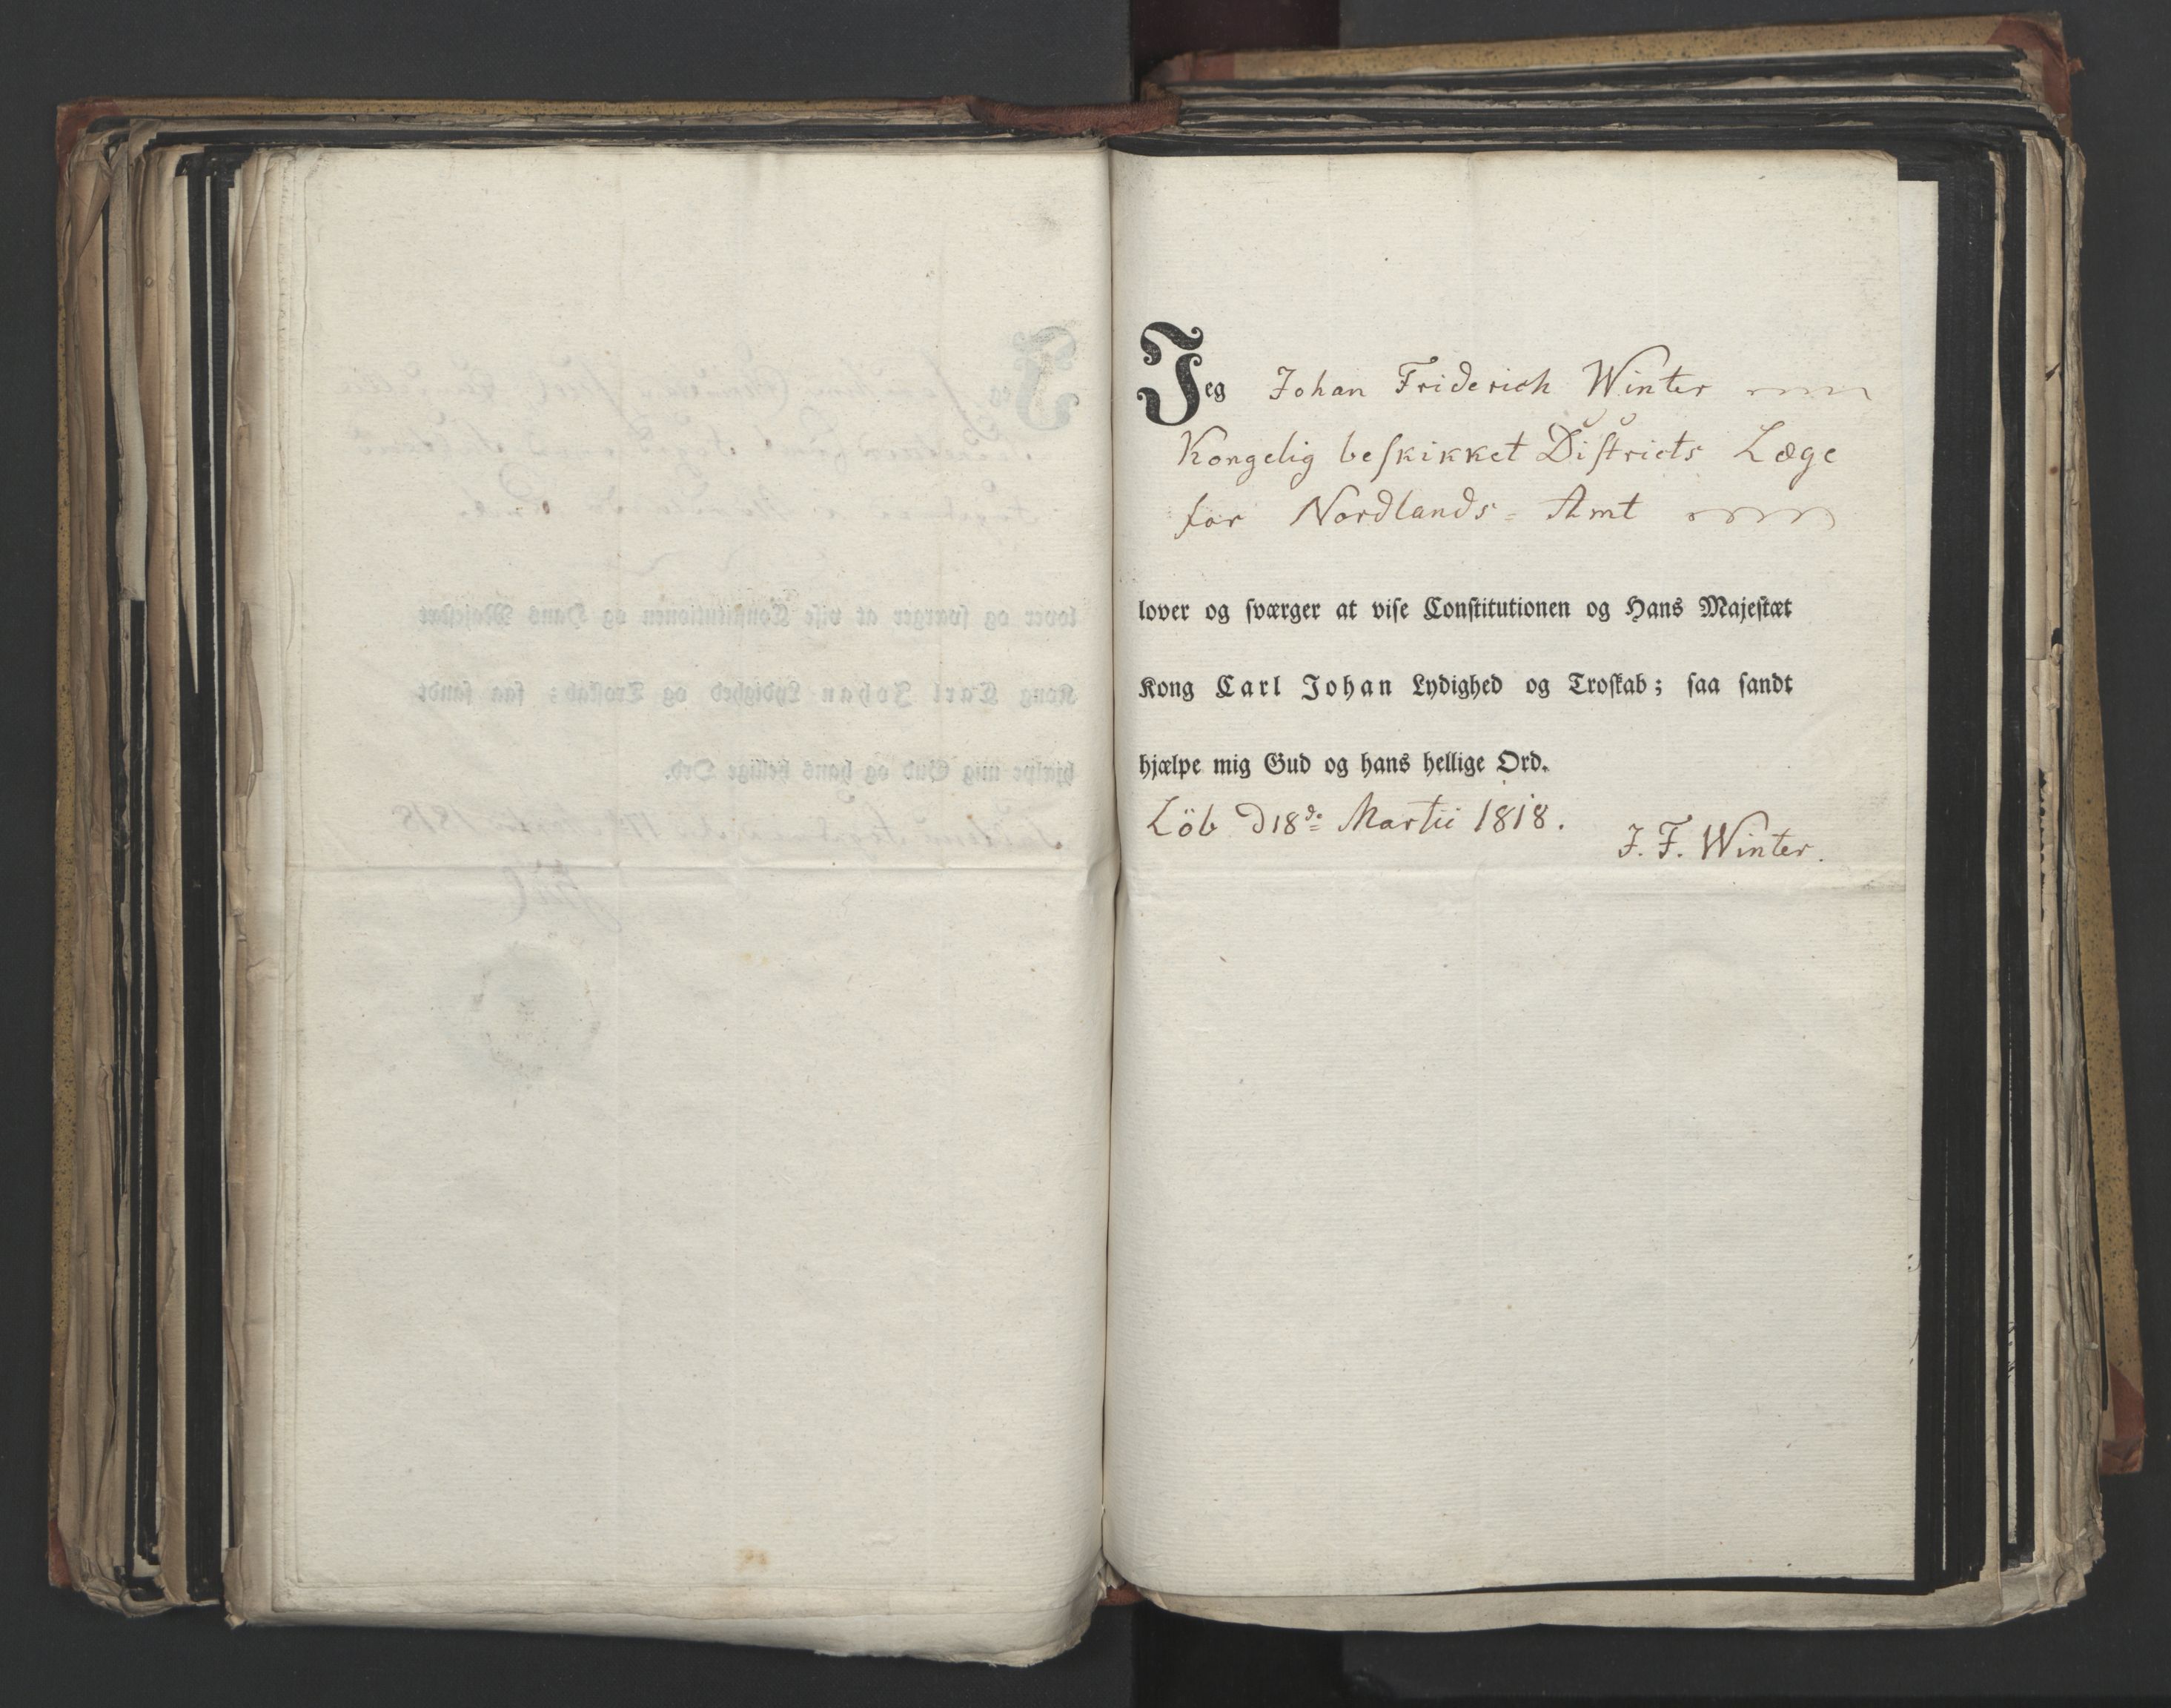 Jeg Johan Friderich Winter
Kongelig beskikket Districts Læge
for Nordlands-Amt
lover og sværger at vise Constitutionen og Hans Majestæt
Kong Carl Johan Lydighed og Troskab; saa sandt
hjælpe mig Gud og hans hellige Ord.
Löb D 18de Martii 1818.
J. F. Winter.